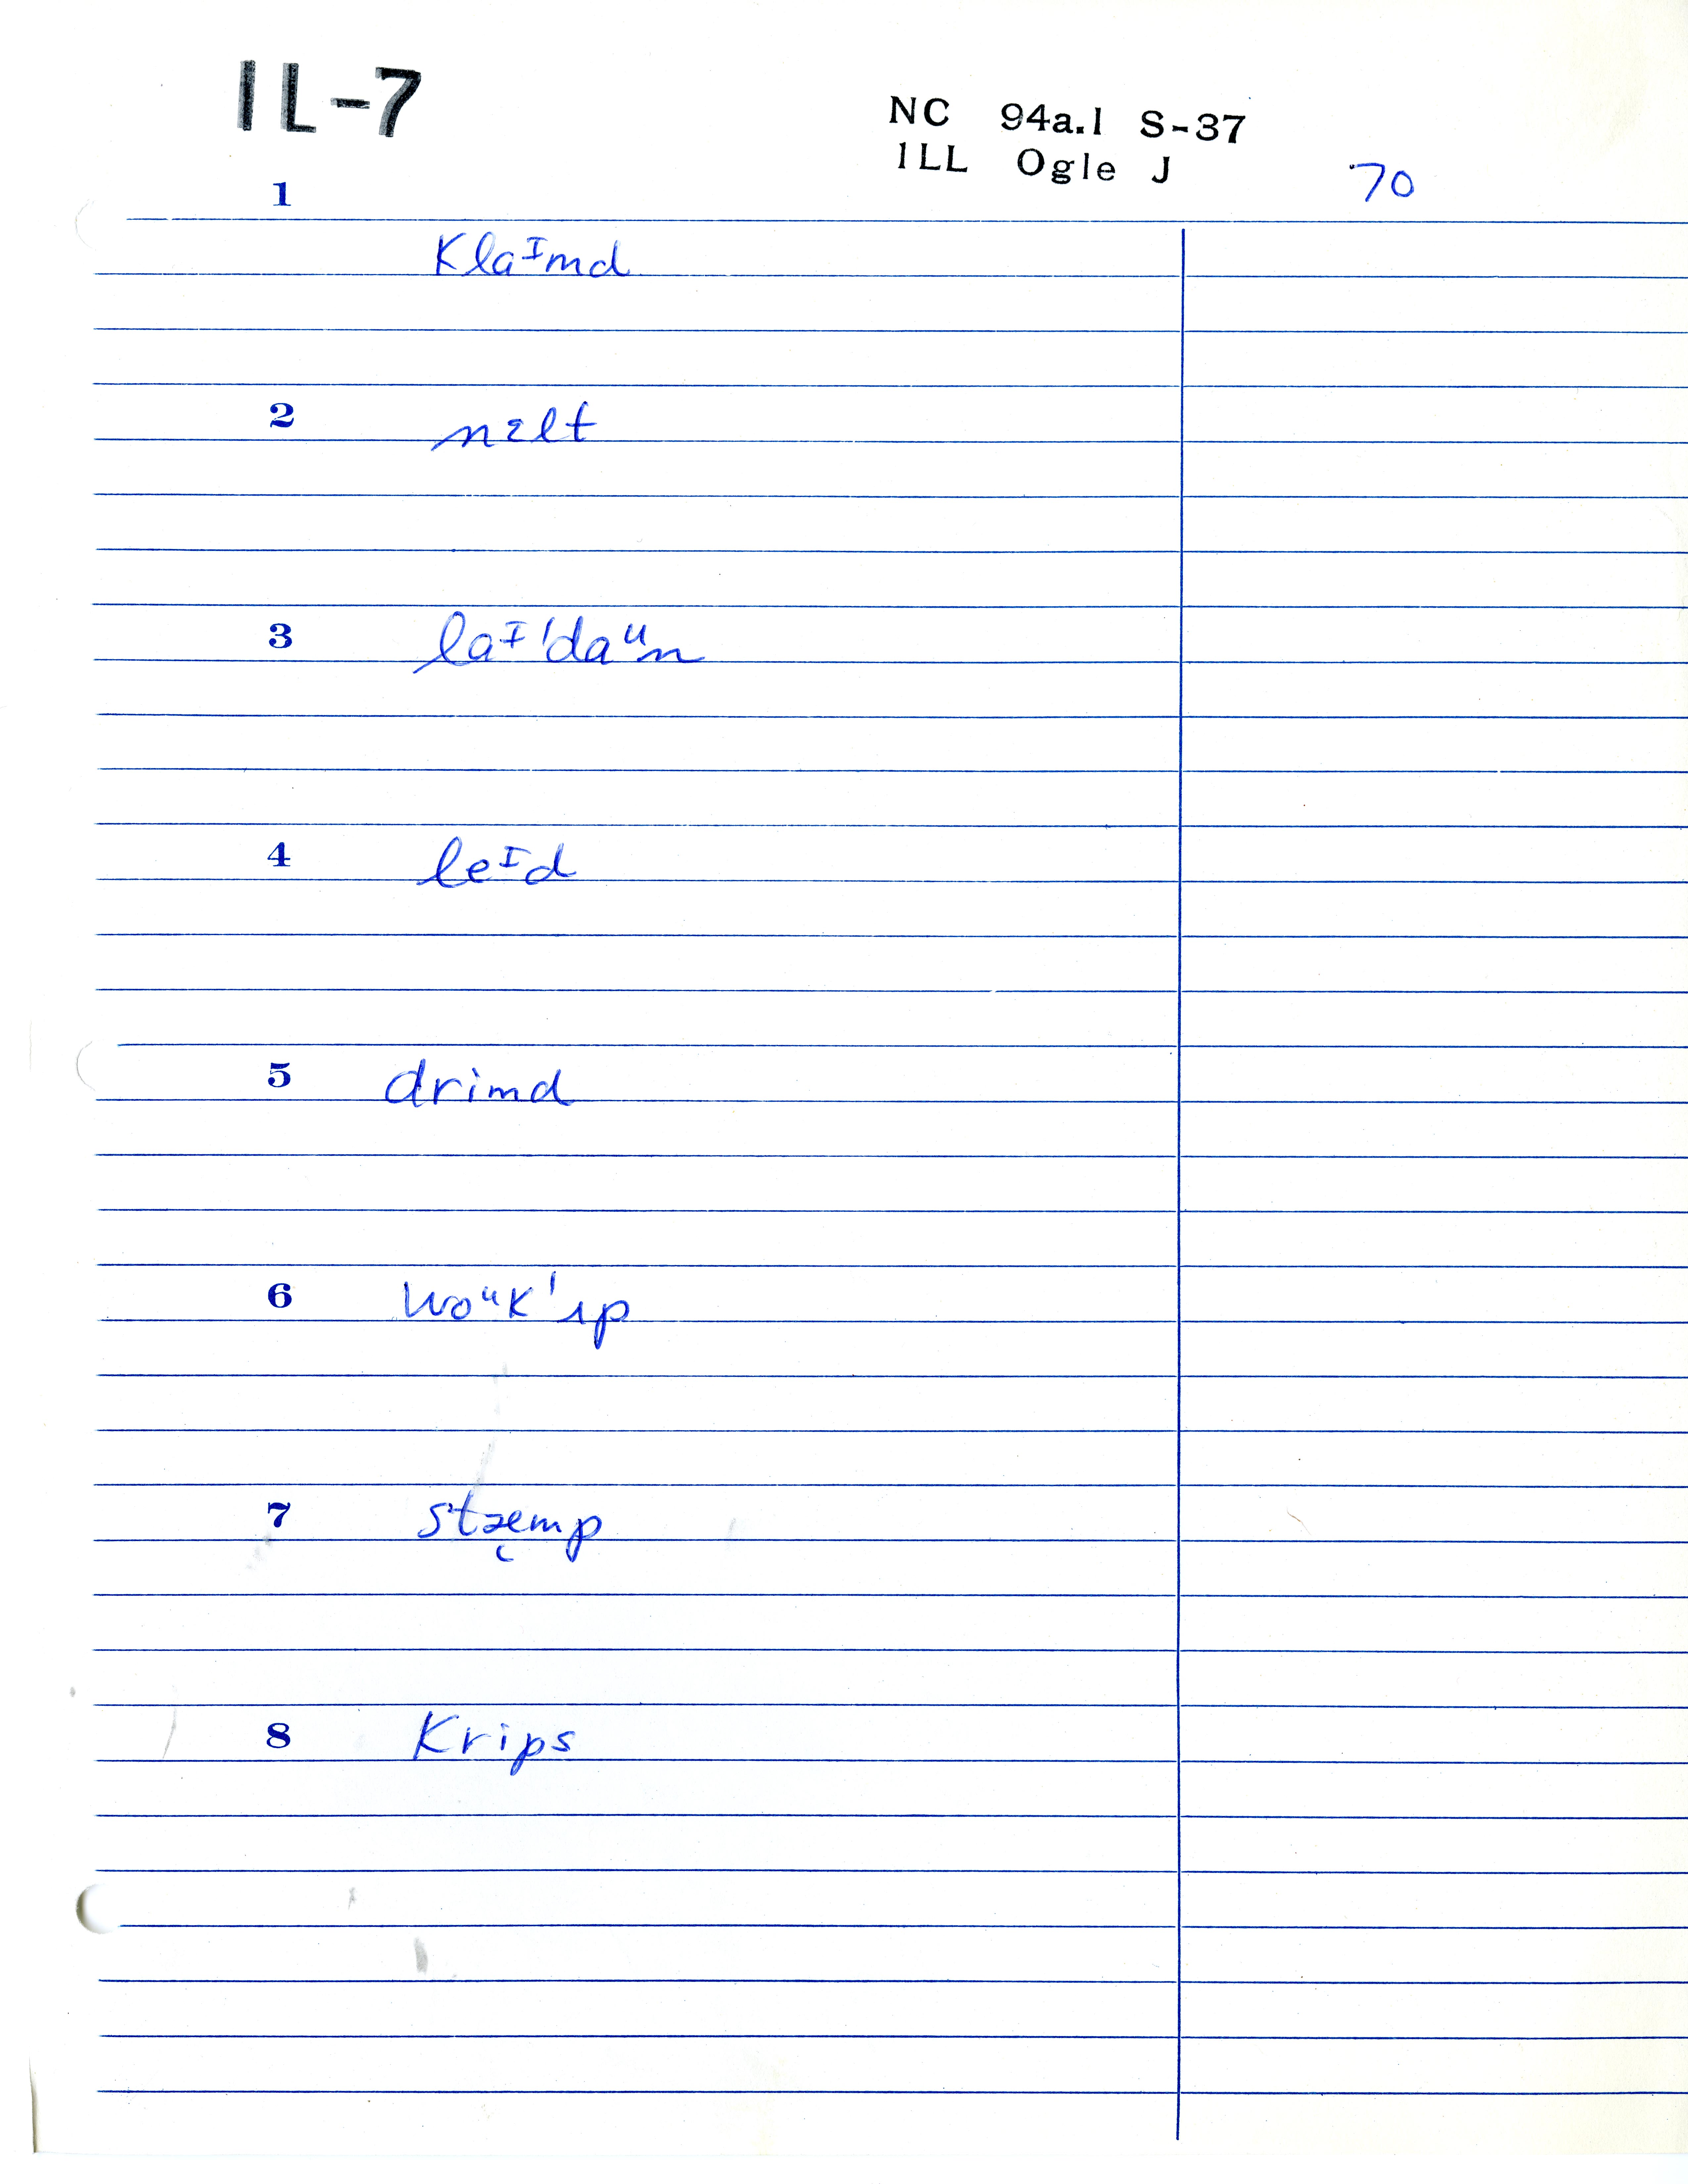 IL-7
NC 94a.1 S-37
ILL Ogle J
70
1
klaᴵmd
2
nɛlt
3
laᴵ'daᵘn
4
leᴵd
5
drimd
6
woᵘk'ɪp
7
stæ̜mp
8
krips